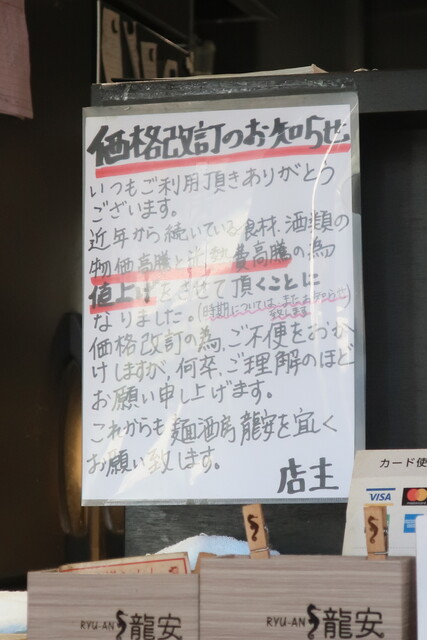 価格改訂のお知らせ
いつもご利用頂きありがとう
ございます。
近年から続いている食材、酒類の
物価高騰と光熱費高騰の為
値上げをさせて頂くことに
なりました。(時期については、またお知らせ
致します)
価格改訂の為、ご不便をおか
けしますが、何卒、ご理解のほど
お願い申し上げます。
これからも麺酒房龍安を宜しく
お願い致します。
店主
カード使
VISA
RYU-AN 龍安
RYU-AN 龍安